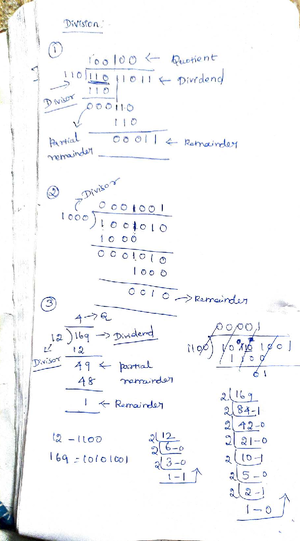 Division:
①
100100 ← Quotient
110 ) 110 11011 ← Dividend
110
Divisor
000110
110
Partial remainder
00011 ← Remainder
②
Divisor
0001001
1000 ) 1001010
1000
0001010
1000
0010 → Remainder
③
4 → Q
12 ) 169 → Dividend
Divisor
12
49 ← partial remainder
48
1 ← Remainder
00001
1100
1100
01
12 - 1100
169 = 10101001
2 12
2 6-0
2 3-0
1-1
2 169
2 84-1
2 42-0
2 21-0
2 10-1
2 5-0
2 2-1
1-0